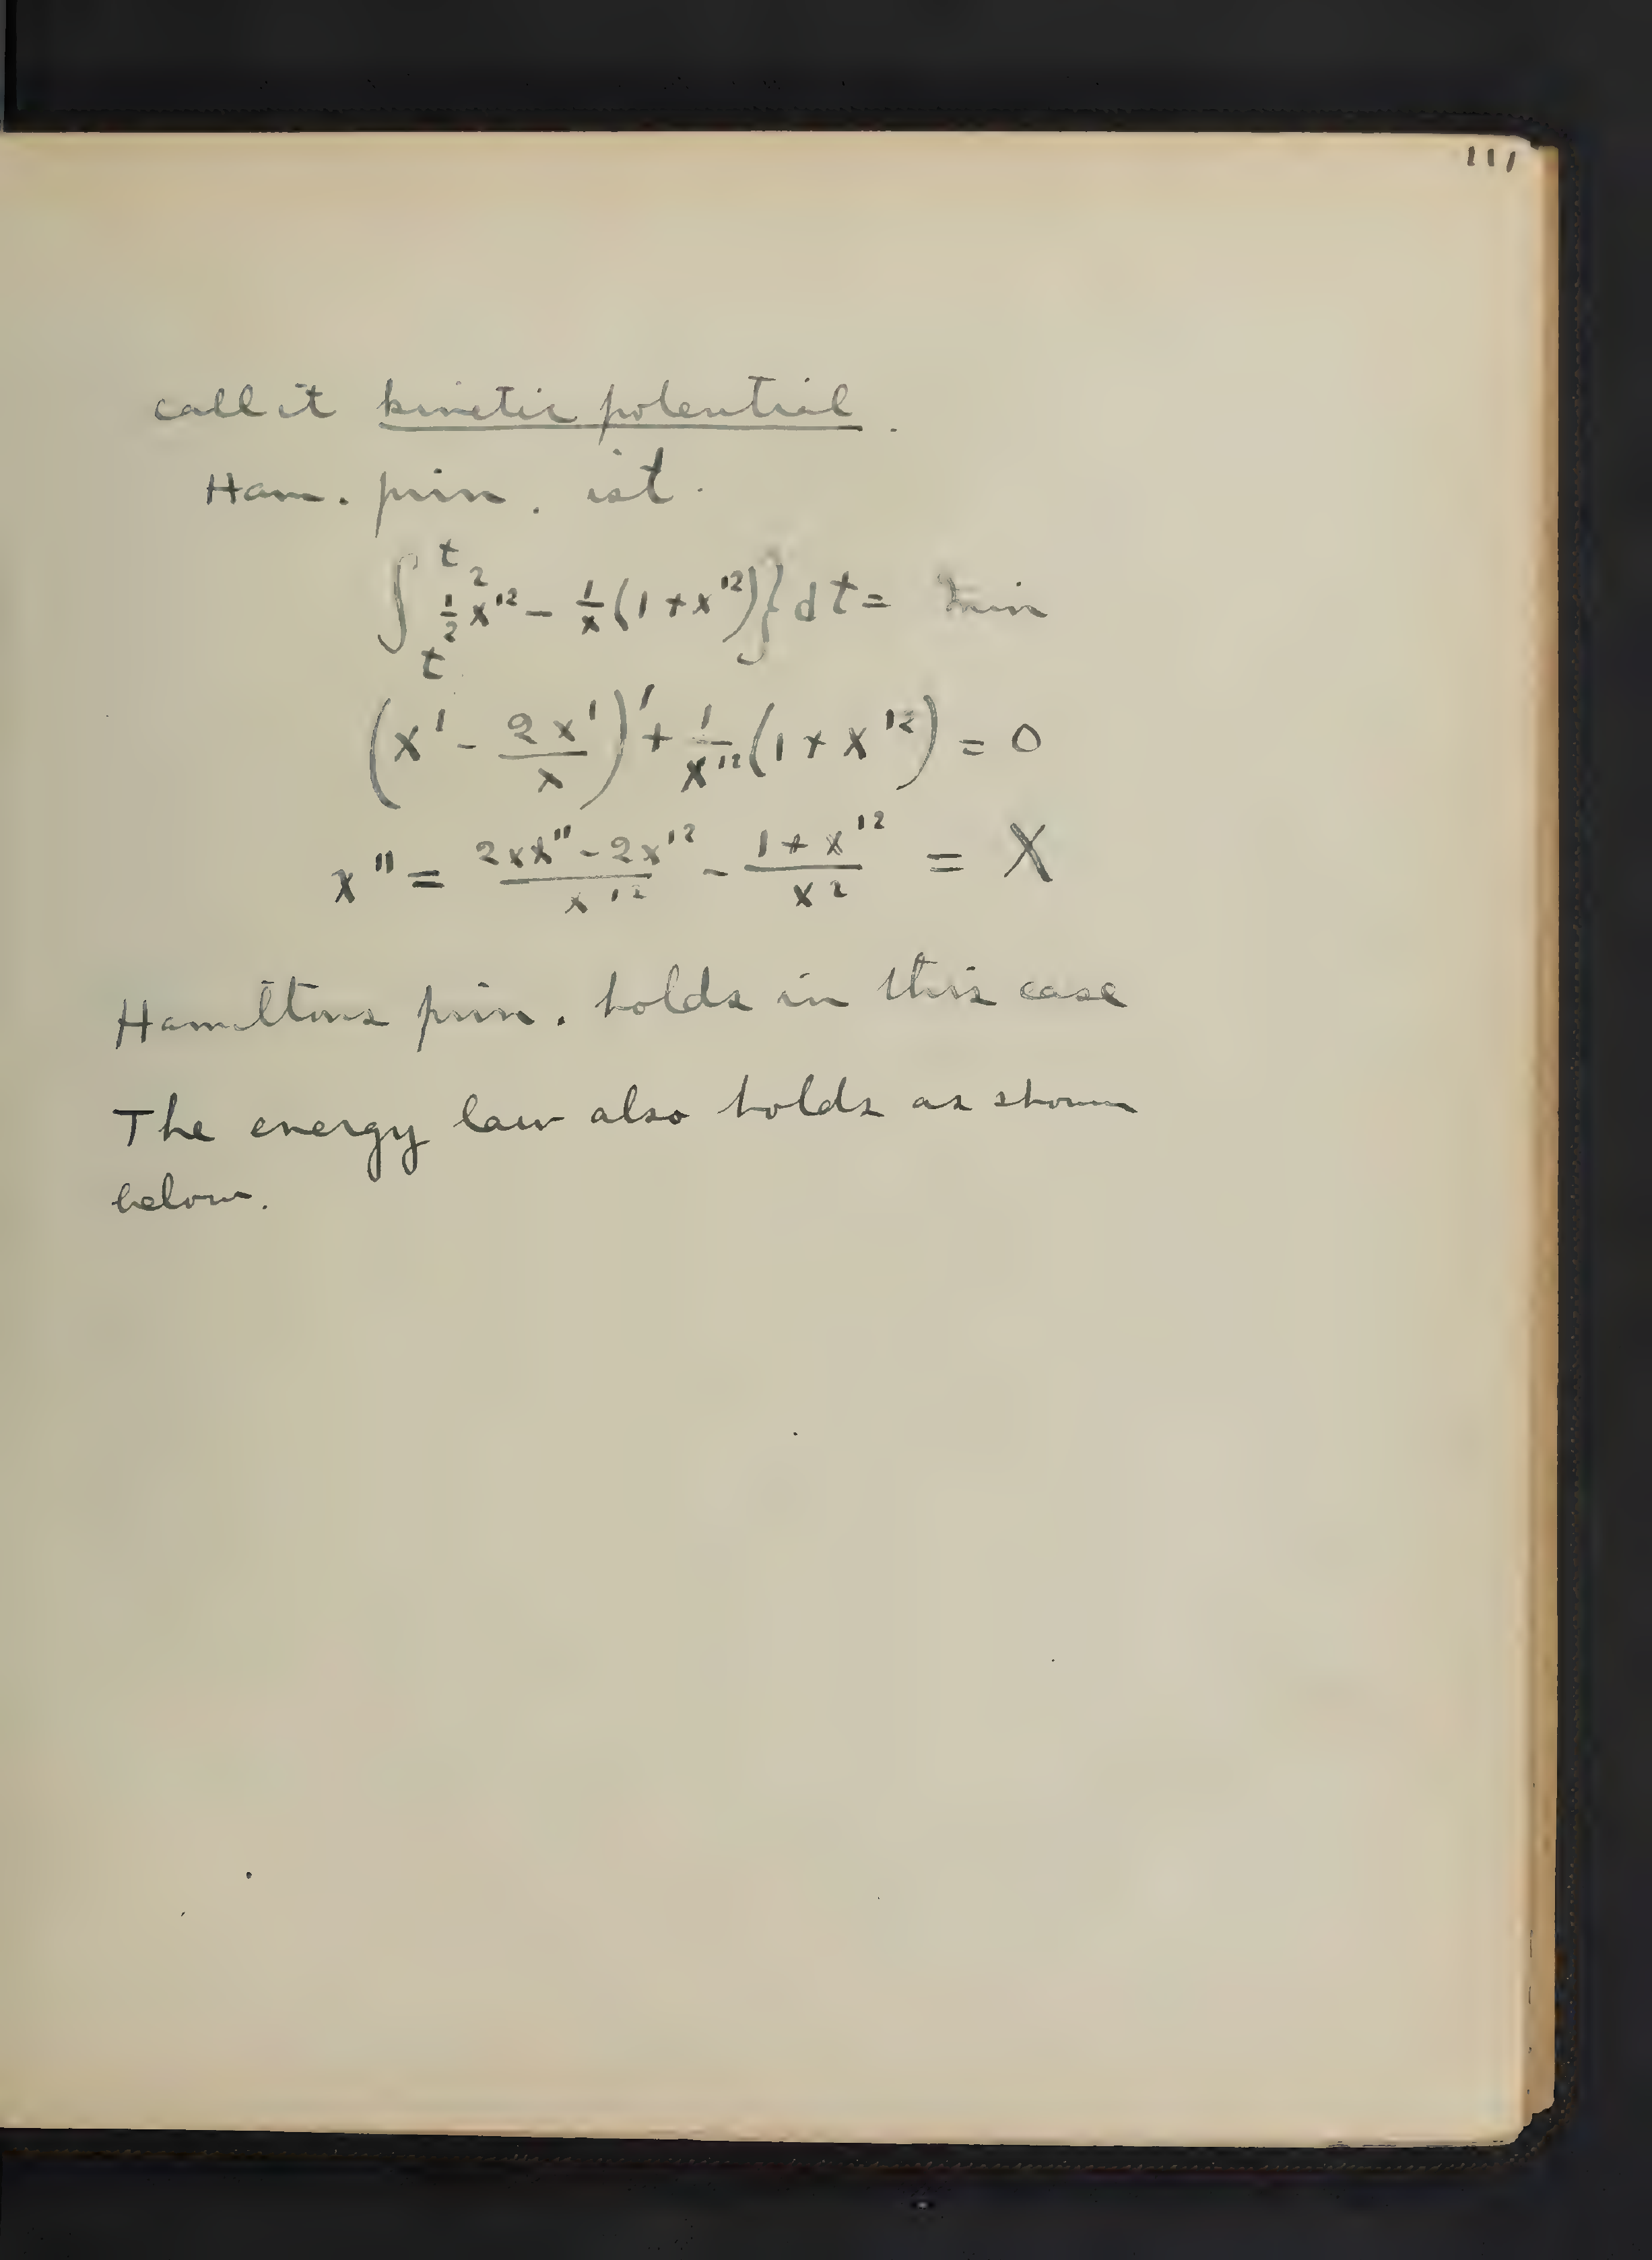 111
call it kinetic potential.
Ham. prin. ist.
∫_t^{t_2} ½x'² − 1/x (1 + x'²)} dt = min
(x' − 2x'/x)' + 1/x'² (1 + x'²) = 0
x'' = (2xx'' − 2x'²)/x'² − (1 + x'²)/x² = X
Hamiltons prin. holds in this case
The energy law also holds as shown
below.